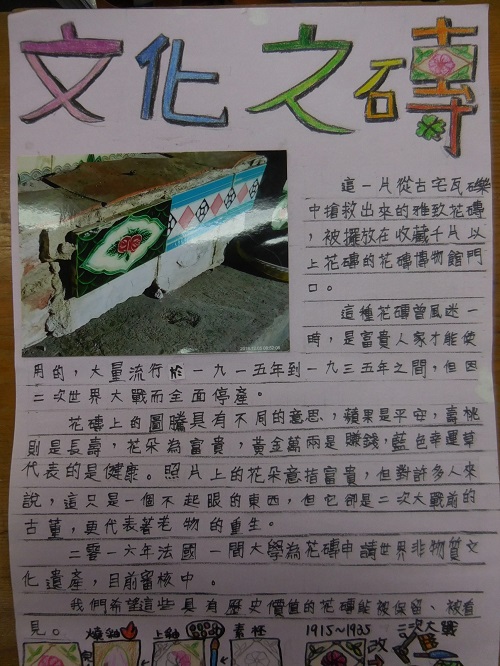 文化之磚
這一片從古宅瓦礫
中搶救出來的雅致花磚
，被擺放在收藏千片以
上花磚的花磚博物館門
口。
這種花磚曾風迷一
時，是富貴人家才能使
用的，大量流行於一九一五年到一九三五年之間，但因
二次世界大戰而全面停產。
花磚上的圖騰具有不同的意思，蘋果是平安，壽桃
則是長壽，花朵為富貴，黃金萬兩是賺錢，藍色幸運草
代表的是健康。照片上的花朵意指富貴，但對許多人來
說，這只是一個不起眼的東西，但它卻是二次大戰前的
古董，更代表著老物的重生。
二零一六年法國一間大學為花磚申請世界非物質文
化遺產，目前審核中。
我們希望這些具有歷史價值的花磚能被保留、被看
見。
燒釉 上釉 素坯 1915~1935 二次大戰
改